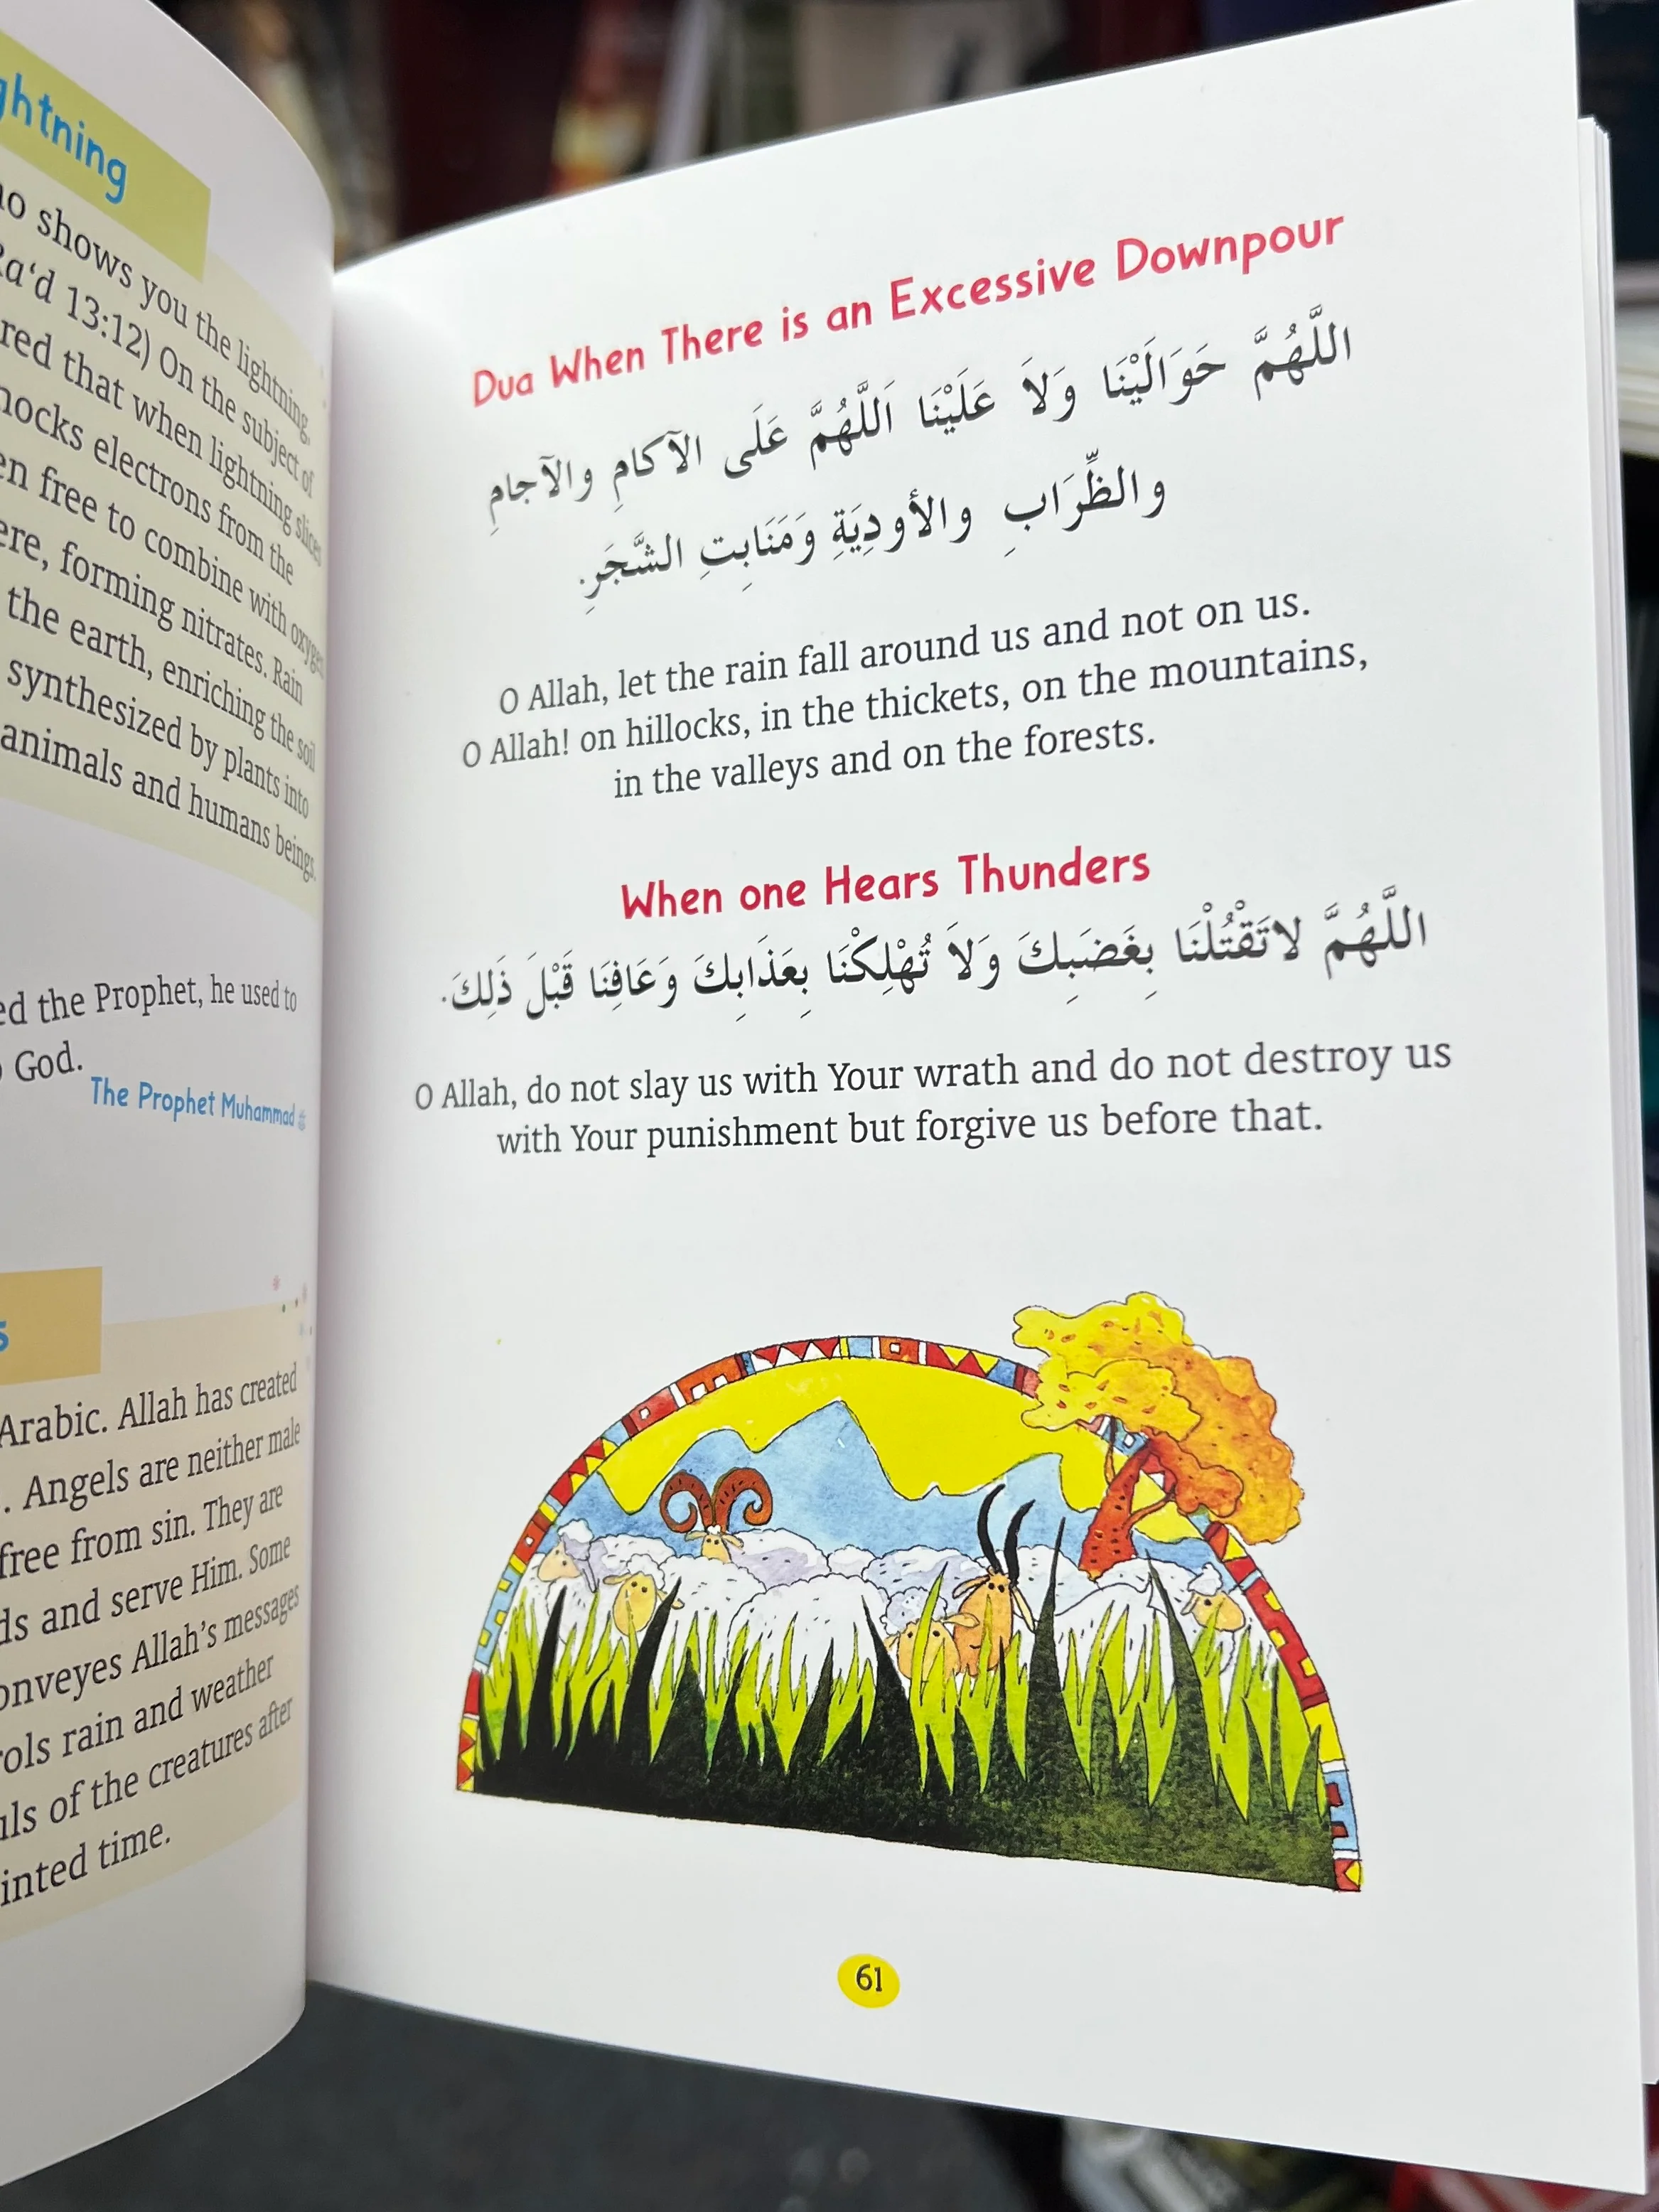 ghtning
no shows you the lightning,
Ra‘d 13:12) On the subject of
red that when lightning slices
nocks electrons from the
en free to combine with oxygen
ere, forming nitrates. Rain
the earth, enriching the soil
synthesized by plants into
animals and humans beings.
ed the Prophet, he used to
God.
The Prophet Muhammad
s
Arabic. Allah has created
. Angels are neither male
free from sin. They are
ds and serve Him. Some
onveyes Allah’s messages
rols rain and weather
uls of the creatures after
inted time.
Dua When There is an Excessive Downpour
اللَّهُمَّ حَوَالَيْنَا وَلاَ عَلَيْنَا اَللَّهُمَّ عَلَى الآكامِ والآجامِ
والظِّرَابِ والأودِيَةِ وَمَنَابِتِ الشَّجَرِ.
O Allah, let the rain fall around us and not on us.
O Allah! on hillocks, in the thickets, on the mountains,
in the valleys and on the forests.
When one Hears Thunders
اللَّهُمَّ لاتَقْتُلْنَا بِغَضَبِكَ وَلاَ تُهْلِكْنَا بِعَذَابِكَ وَعَافِنَا قَبْلَ ذَلِكَ.
O Allah, do not slay us with Your wrath and do not destroy us
with Your punishment but forgive us before that.
61